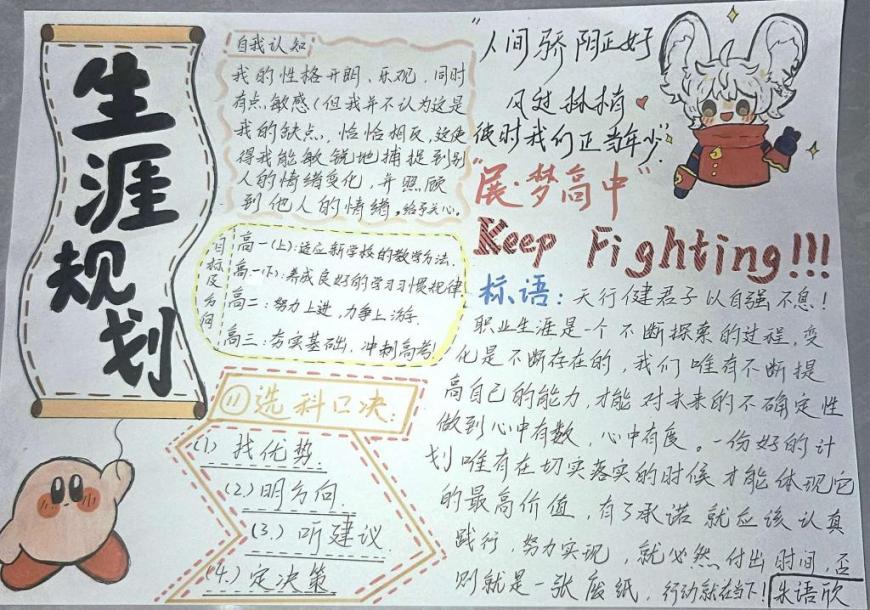 生涯规划
自我认知
我的性格开朗、乐观,同时
有点敏感(但我并不认为这是
我的缺点),恰恰相反,这使
得我能敏锐地捕捉到别
人的情绪变化,并照顾
到他人的情绪。给予关心。
目标及方向
高一(上):适应新学校的教学方法.
高一(下):养成良好的学习习惯规律
高二:努力上进,力争上游.
高三:夯实基础,冲刺高考!
选科口决:
(1) 找优势.
(2.)明方向.
(3.) 听建议.
(4.)定决策.
"人间骄阳正好
风过林梢
彼时我们正当年少"
"展·梦高中"
Keep Fighting!!!
标语:天行健君子以自强不息!
职业生涯是一个不断探索的过程,变
化是不断存在的,我们唯有不断提
高自己的能力,才能对未来的不确定性
做到心中有数,心中有度。一份好的计
划唯有在切实落实的时候才能体现它
的最高价值,有了承诺就应该认真
践行,努力实现,就必然付出时间,否
则就是一张废纸,行动就在当下!朱语欣